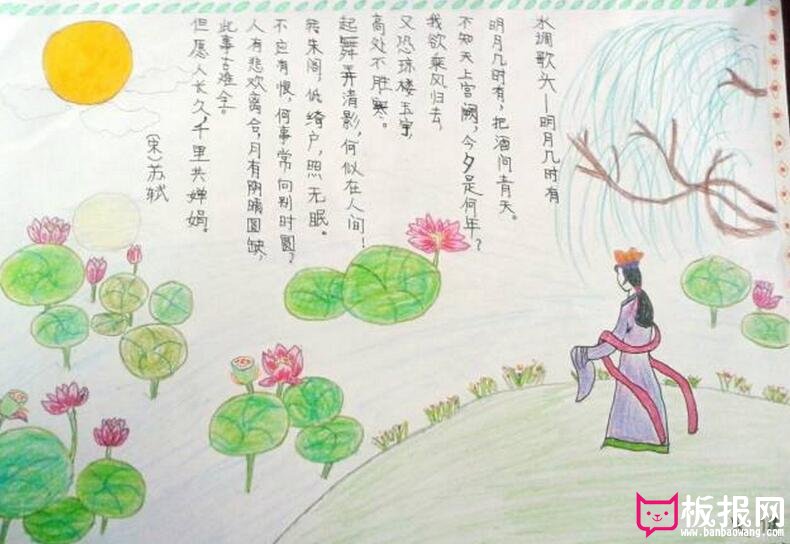 水调歌头—明月几时有
明月几时有，把酒问青天。
不知天上宫阙，今夕是何年？
我欲乘风归去，
又恐琼楼玉宇，
高处不胜寒。
起舞弄清影，何似在人间！
转朱阁，低绮户，照无眠。
不应有恨，何事常向别时圆？
人有悲欢离合，月有阴晴圆缺，
此事古难全。
但愿人长久，千里共婵娟。
（宋）苏轼
板报网
www.banbaowang.com